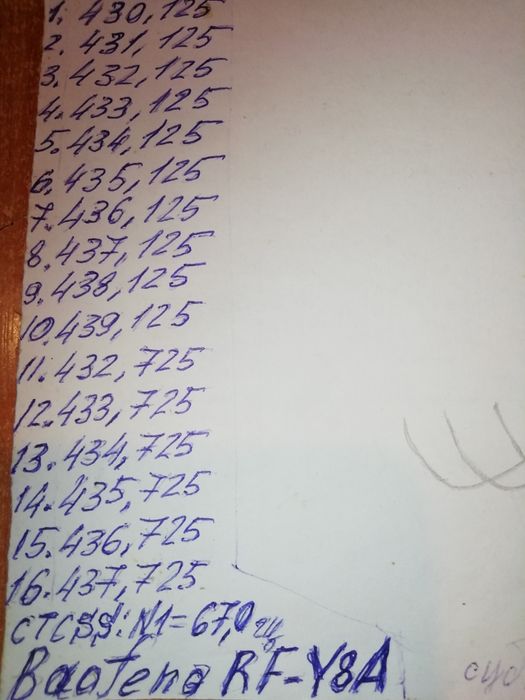 1. 430,125
2. 431,125
3. 432,125
4. 433,125
5. 434,125
6. 435,125
7. 436,125
8. 437,125
9. 438,125
10. 439,125
11. 432,725
12. 433,725
13. 434,725
14. 435,725
15. 436,725
16. 437,725
CTCSS: N1=67,0 гц
Baofeng RF-Y8A